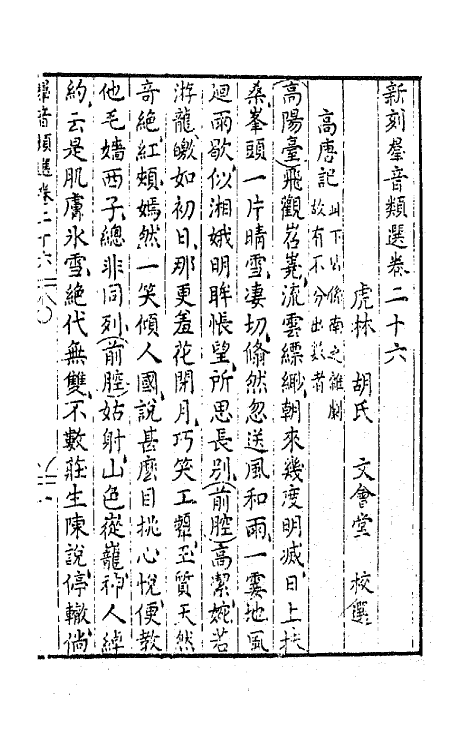 新刻羣音類選卷二十六
虎林 胡氏 文會堂 校選
高唐記 此下皆係南之雜劇
故有不分出數者
(高陽臺)飛觀岧嶤流雲縹緲朝來幾度明滅日上扶
桑峯頭一片晴雪凄切翛然忽送風和雨一霎地風
廻雨歇似湘娥明眸悵望所思長別(前腔)高潔婉若
游龍皦如初日那更羞花閉月巧笑工顰玉質天然
奇絕紅頰嫣然一笑傾人國說甚麽目挑心悅便教
他毛嬙西子總非同列(前腔)姑射山色嵸巃神人綽
約云是肌膚氷雪絕代無雙不數莊生陳說停轍倘
羣音類選卷二十六